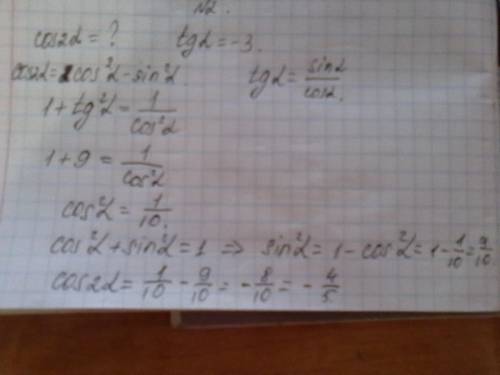 N2.
cos2α = ? tgα = -3.
cos2α = cos²α - sin²α. tgα = sinα/cosα.
1 + tg²α = 1/cos²α
1 + 9 = 1/cos²α
cos²α = 1/10.
cos²α + sin²α = 1 ⇒ sin²α = 1 - cos²α = 1 - 1/10 = 9/10.
cos2α = 1/10 - 9/10 = - 8/10 = - 4/5